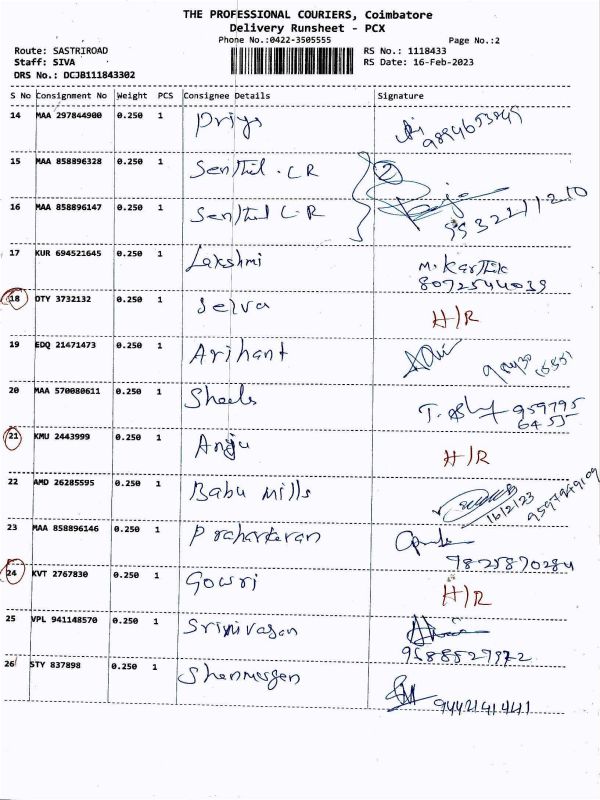 THE PROFESSIONAL COURIERS, Coimbatore
Delivery Runsheet - PCX
Phone No.:0422-3505555 Page No.:2
Route: SASTRIROAD RS No.: 1118433
Staff: SIVA RS Date: 16-Feb-2023
DRS No.: DCJB111843302
S No Consignment No Weight PCS Consignee Details Signature
14 MAA 297844900 0.250 1 Priya
15 MAA 858896328 0.250 1 Senthil .C R 2
16 MAA 858896147 0.250 1 Senthil C R
17 KUR 694521645 0.250 1 Lakshmi M. Karthik
8072544039
18 OTY 3732132 0.250 1 Selva H/R
19 EDQ 21471473 0.250 1 Arihant
20 MAA 570080611 0.250 1 Sheela 959795
6455
21 KMU 2443999 0.250 1 Anju H/R
22 AMD 26285595 0.250 1 Babu Mills 16/2/23
23 MAA 858896146 0.250 1 Praharharan
9825870284
24 KVT 2767830 0.250 1 Gowri H/R
25 VPL 941148570 0.250 1 Srinivasan
9588527972
26 STY 837898 0.250 1 Shenmugen
9442141441